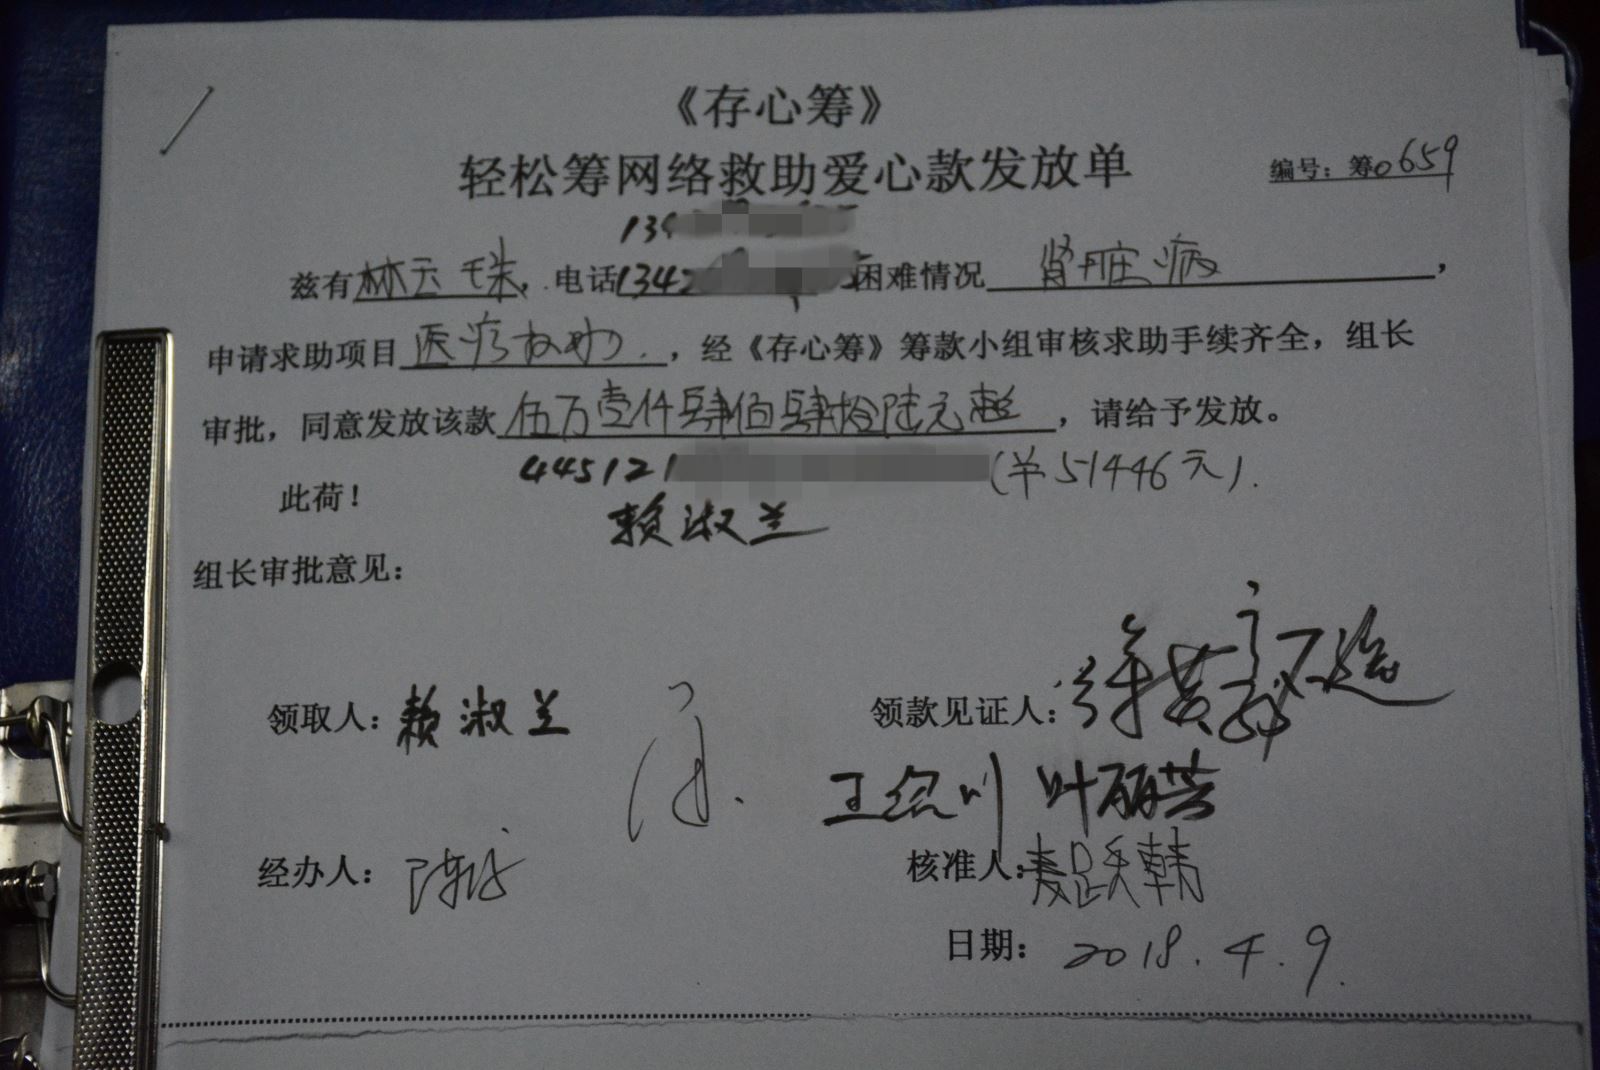 《存心筹》
轻松筹网络救助爱心款发放单
编号：筹0659
134
兹有林云珠，电话1342 困难情况 肾脏病，
申请求助项目医疗救助.，经《存心筹》筹款小组审核求助手续齐全，组长
审批，同意发放该款伍万壹仟肆佰肆拾陆元整，请给予发放。
445121 (￥51446元).
此荷！
赖淑兰
组长审批意见：
领取人：赖淑兰 领款见证人：
叶丽芸
经办人： 核准人：
日期：2018.4.9.